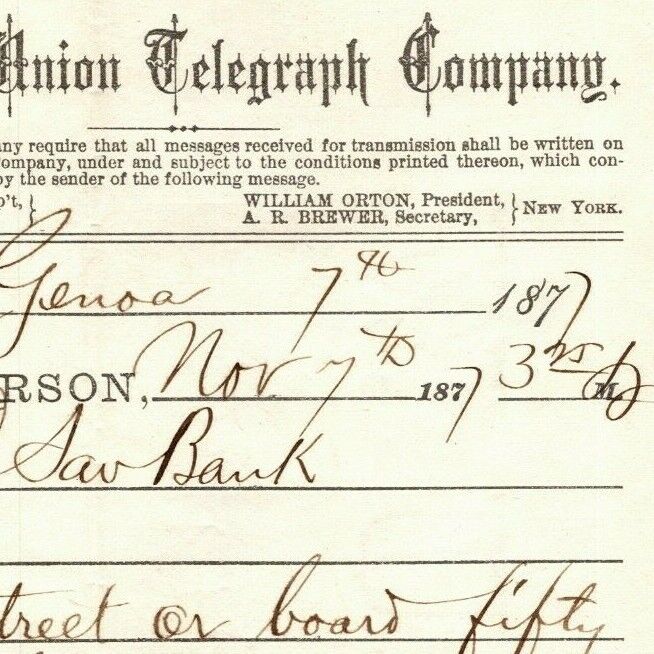 Union Telegraph Company.
any require that all messages received for transmission shall be written on
ompany, under and subject to the conditions printed thereon, which con-
by the sender of the following message.
p't, } WILLIAM ORTON, President, } NEW YORK.
A. R. BREWER, Secretary,
Genoa 7th 1877
RSON, Nov 7th 1877 3 25 M
Sav Bank
treet or board fifty